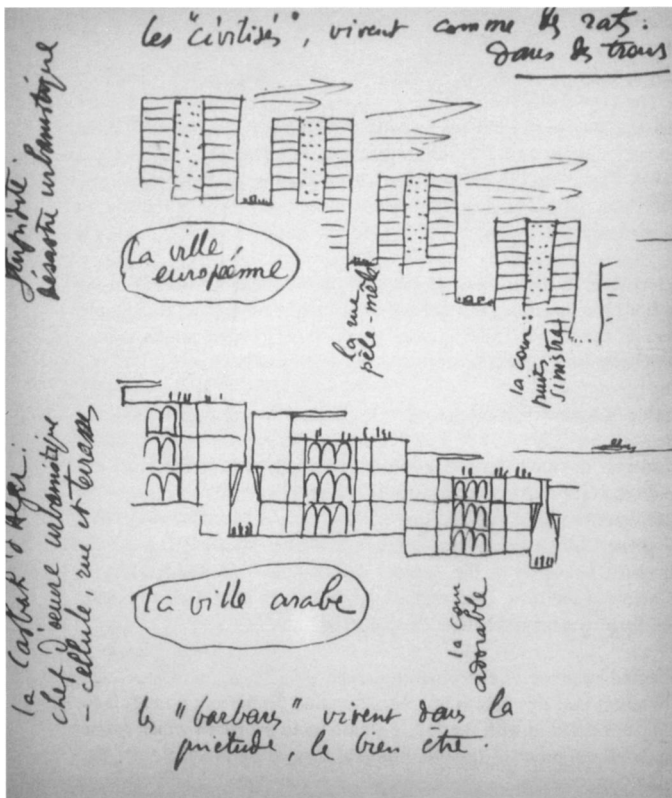 les "civilisés", vivent comme des rats:
dans des trous
stupidité:
désastre urbanistique
la ville
européenne
la rue
pèle-mêle
la cour:
puits
sinistre
la Casbah d'Alger:
chef d'œuvre urbanistique
- cellule, rue et terrasses
la ville arabe
la cour
adorable
les "barbares" vivent dans la
quiétude, le bien être.